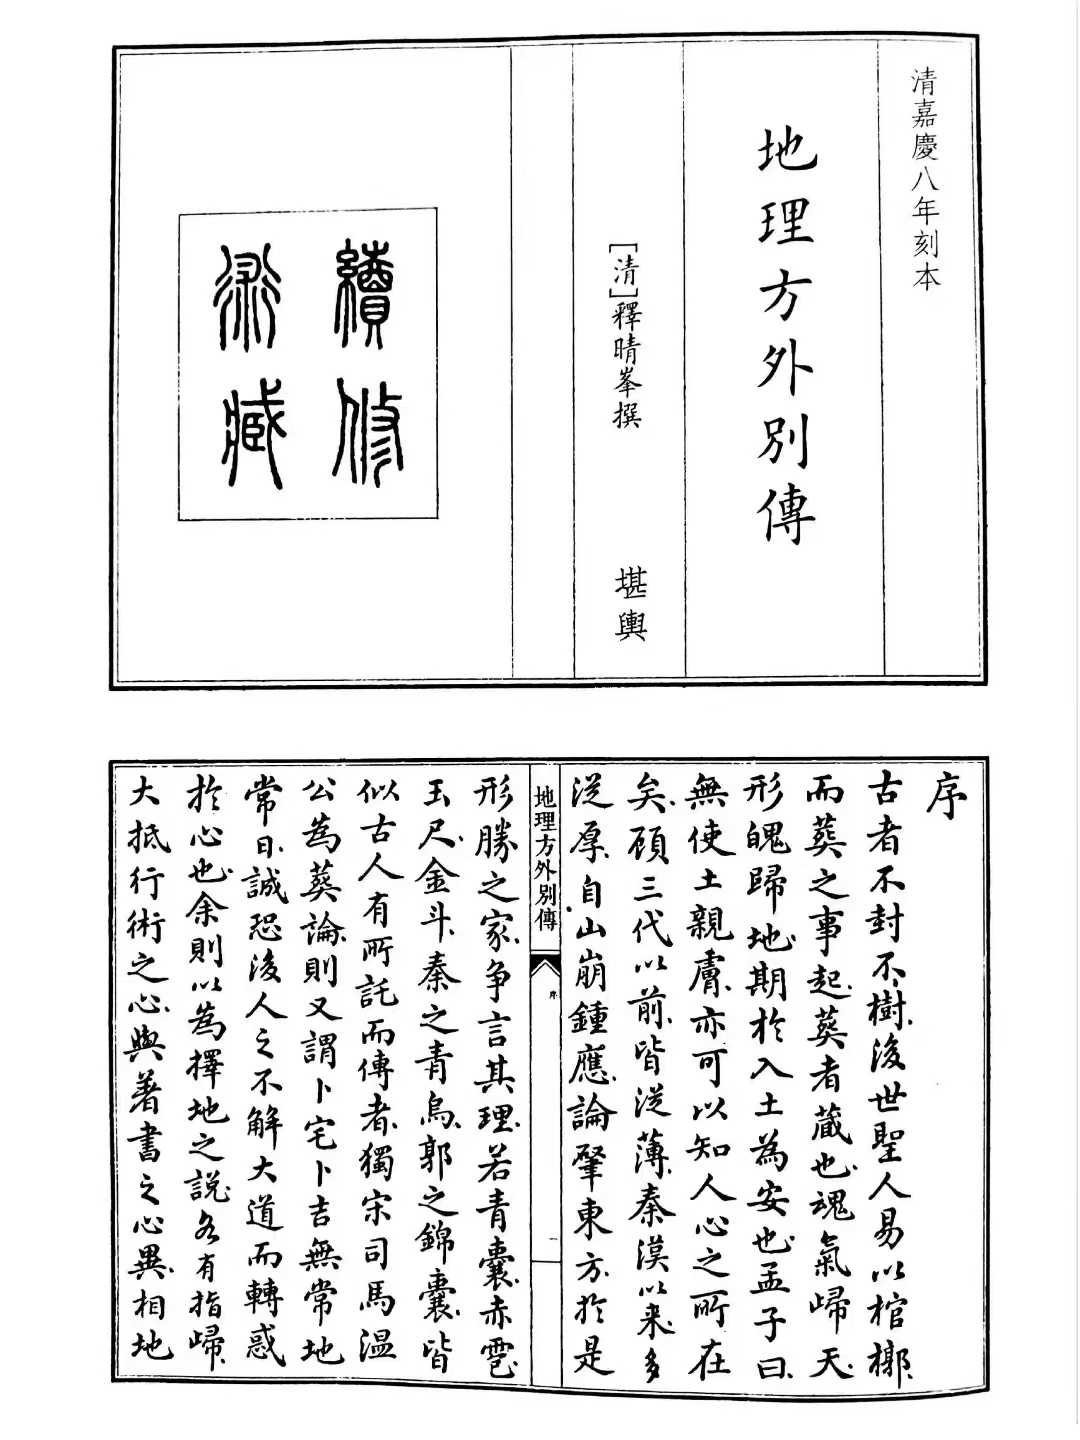 清嘉慶八年刻本
地理方外別傳
[清]釋晴峯撰
堪輿
續修
術藏
序
古者不封不樹後世聖人易以棺槨
而葬之事起葬者蔵也魂氣歸天
形魄歸地期於入土為安也孟子曰
無使土親膚亦可以知人心之所在
矣顧三代以前皆從薄秦漢以来多
從厚自山崩鍾應論肇東方於是
地理方外別傳
序
一
形勝之家争言其理若青囊赤雹
玉尺金斗秦之青烏郭之錦囊皆
似古人有所託而傳者獨宋司馬温
公為葬論則又謂卜宅卜吉無常地
常日誠恐後人之不解大道而轉惑
於心也余則以為擇地之說各有指歸
大抵行術之心與著書之心異相地